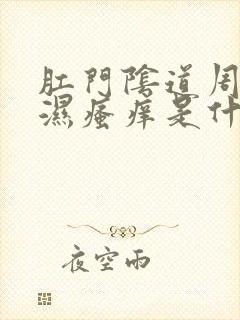 肛門陰道周
濕瘙痒是什
夜空雨